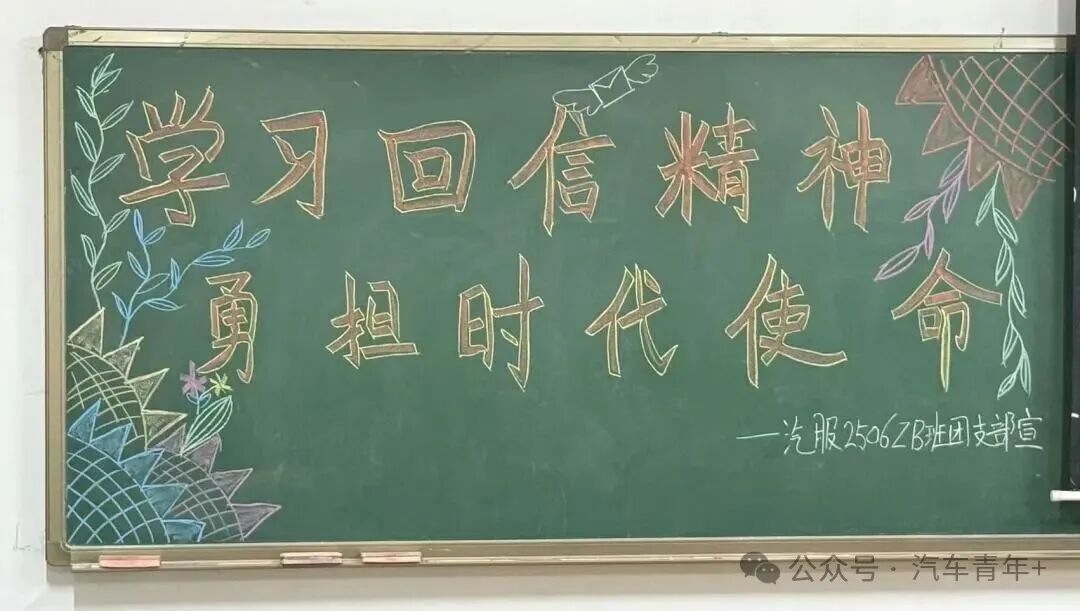 学习回信精神
勇担时代使命
—汽服2506ZB班团支部宣
公众号·汽车青年+